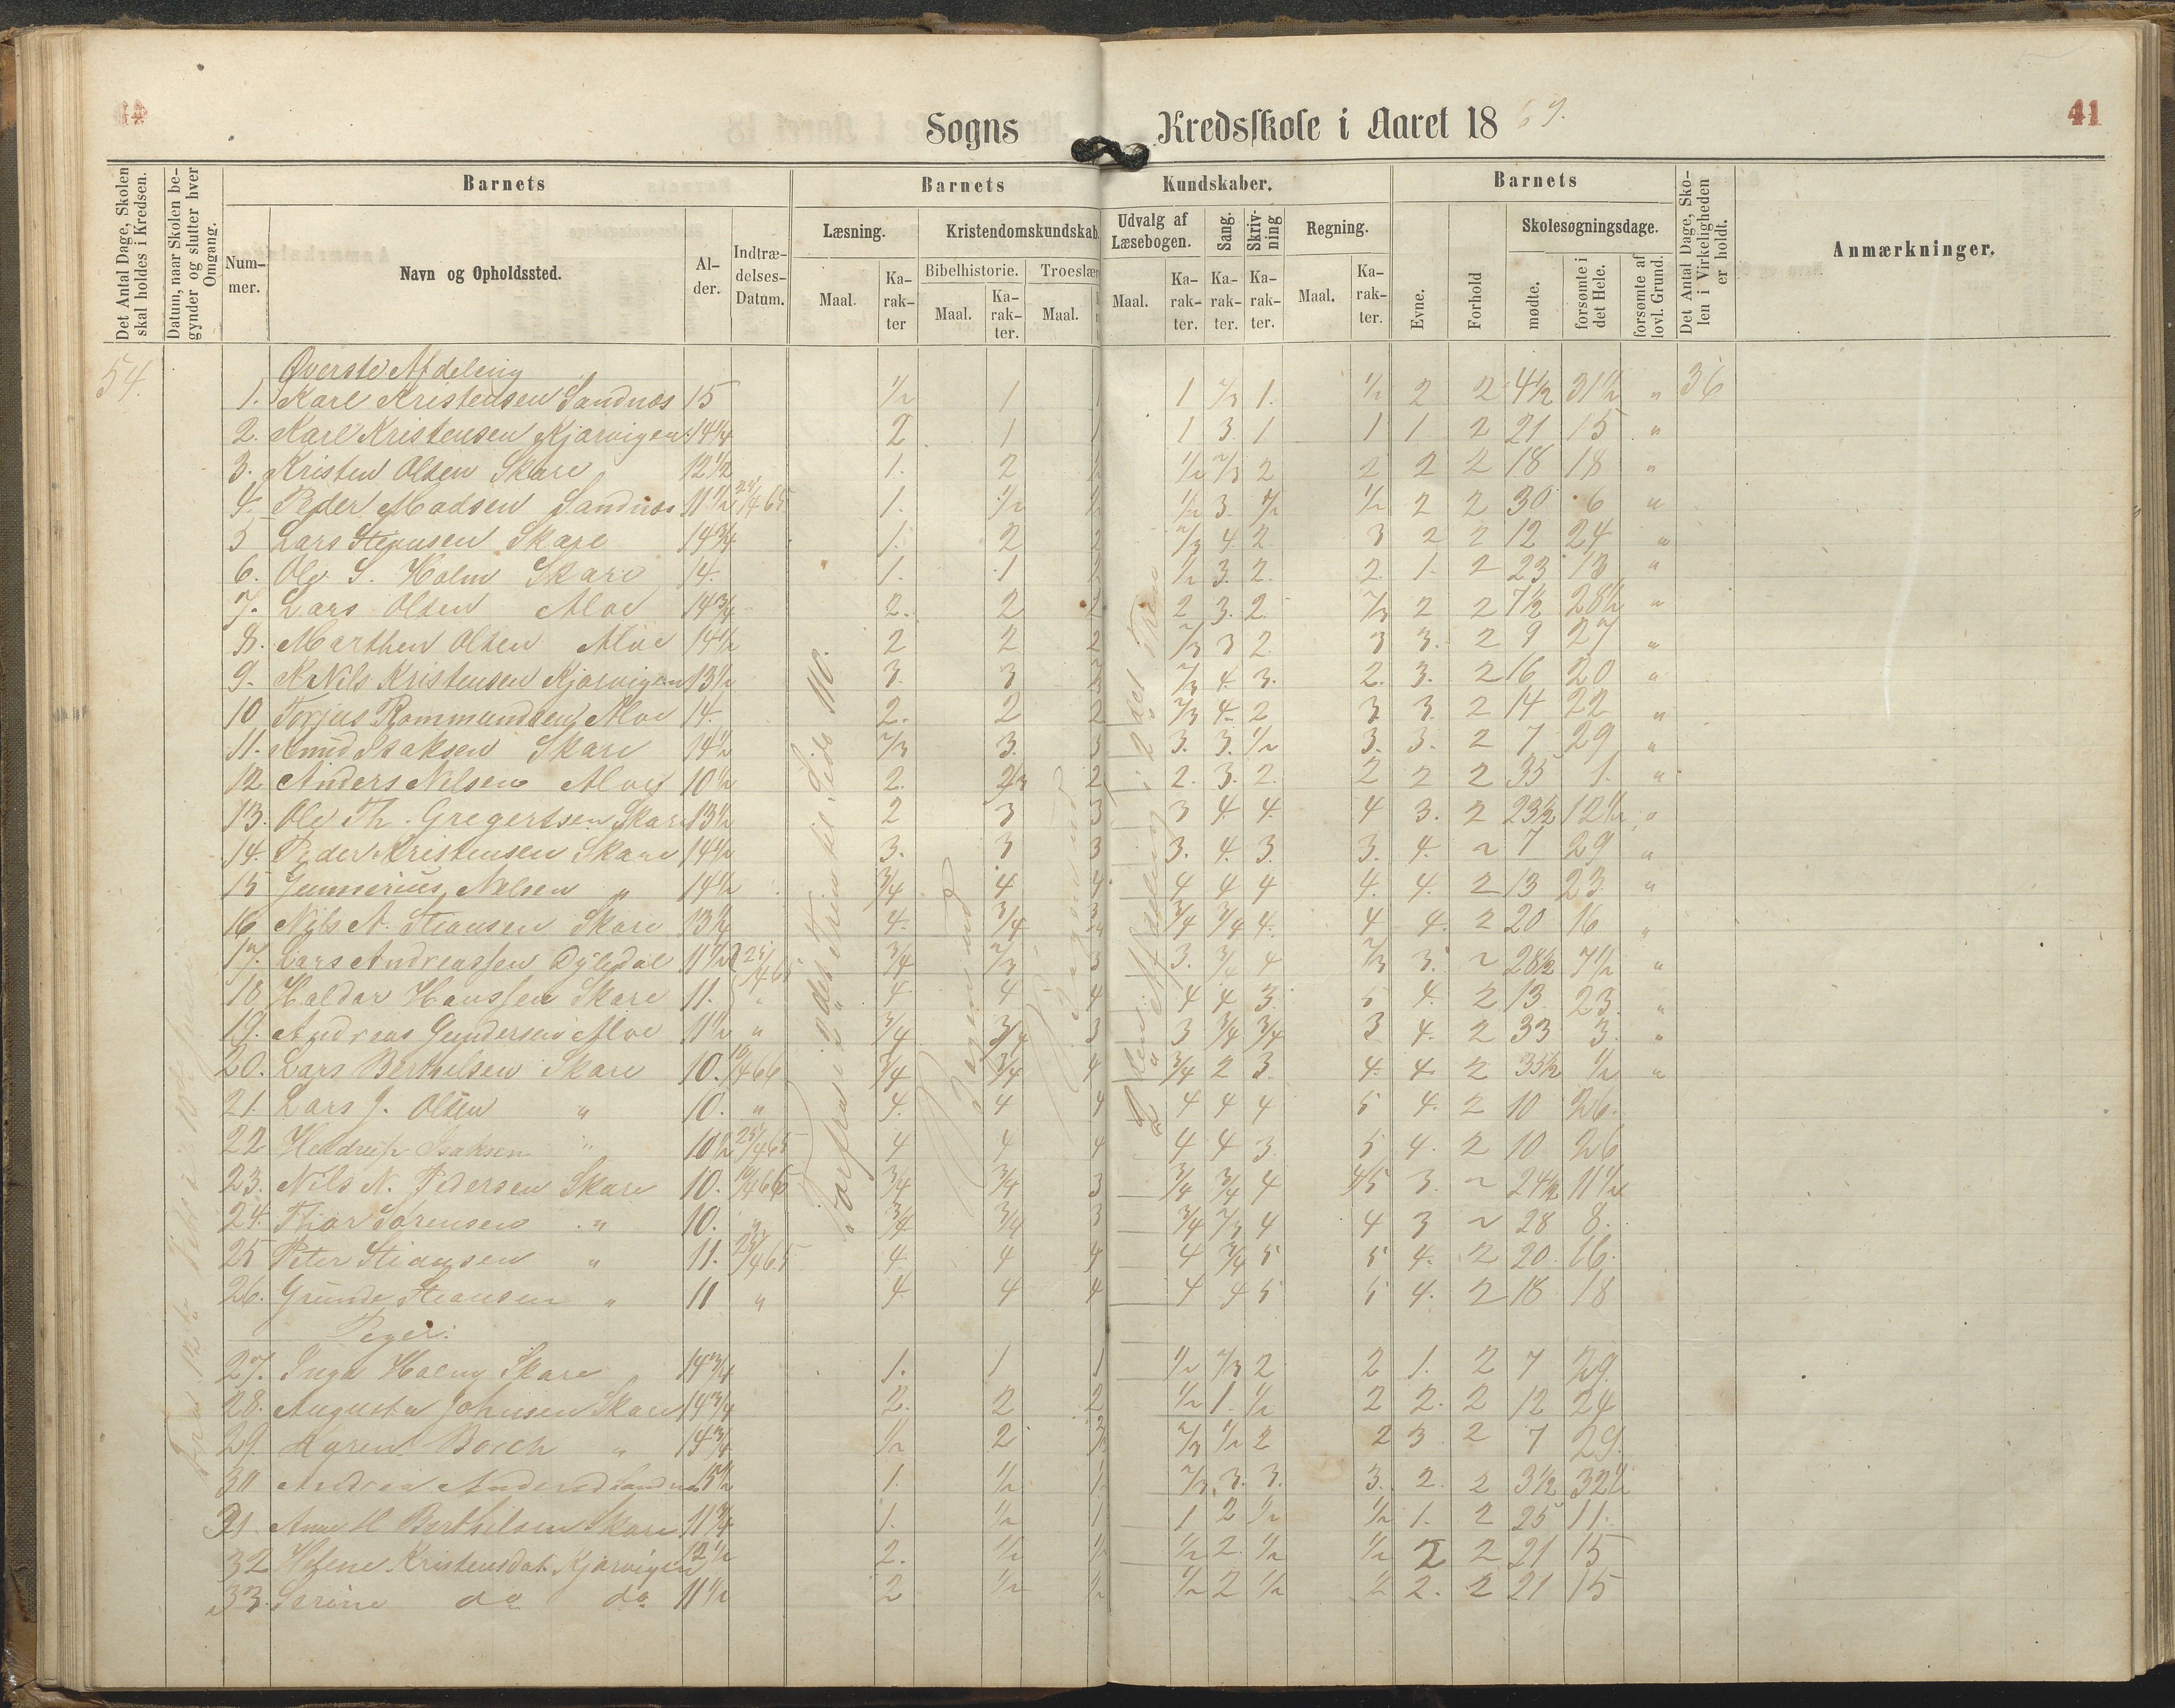 41
Sogns Kredsskole i Aaret 1869.
Det Antal Dage, Skolen skal holdes i Kredsen.
Datum, naar Skolen begynder og slutter hver Omgang.
Barnets
Barnets Kundskaber.
Barnets
Det Antal Dage, Skolen i Virkeligheden er holdt.
Anmærkninger.
Nummer.
Navn og Opholdssted.
Alder.
Indtrædelses-Datum.
Læsning.
Kristendomskundskab.
Udvalg af Læsebogen.
Sang.
Skrivning
Regning.
Evne.
Forhold
Skolesøgningsdage.
Bibelhistorie.
Troeslær
Maal.
Karakter
Maal.
Karakter.
Maal.
Maal.
Karakter.
Karakter.
Karakter.
Maal.
Karakter.
mødte.
forsømte i det Hele.
forsømte af lovl. Grund.
Øverste Afdeling
54. 1. Karl Kristensen Sandnæs 15 1/2 1 1 1 2/3 1. 1/2 2 2 4 1/2 31 1/2 " 36
2. Karl Kristensen Kjørvigen 14 1/4 2 1 1 1 3. 1 1 1. 2 21 15 "
3. Kristen Olsen Skare 12 1/2 1. 2 1/2 1/2 2/3 2 2 2 2 18 18 "
4. Peder Madsen Sandnæs 11 1/2 25/4 65 1. 1/2 1/2 1/2 3. 1/2 1/2 2 2 30 6 "
5 Lars Stiansen Skare 14 3/4 1. 2 2 2/3 4. 2 3 2 2 12 24 "
6. Ole S. Holm Skare 14. 1. 1 1/2 1/2 3. 2. 2. 1. 2 23 13 "
7. Lars Olsen Aloe 14 3/4 2. 2 2 2 3. 2 2/3 2 2 7 1/2 28 1/2 "
8. Marthen Olsen Aloe 14 1/2 2 2 2 2/3 3 2. 3 3. 2 9 27 "
9. Nils Kristensen Kjørvigen 13 1/2 3. 3 2/3 4. 3. 2. 3. 2 16 20 "
10 Torjus Rommundsen Aloe 14. 2. 2 2 2/3 4. 2 3. 3. 2 14 22 "
11. Knud Isaksen Skare 14 1/2 2/3 3. 3 3. 3. 1/2 3. 3. 2 7 29 "
12 Anders Nelsen Aloe 10 1/2 2. 2/3 2 2. 3. 2. 2 2 2 35 1. "
13. Ole Th. Gregertsen Skare 13 1/2 2 3 3 3 4. 4. 4 3. 2 23 1/2 12 1/2 "
14. Peder Kristensen Skare 14 1/2 3. 3 3 3. 4. 3. 3. 4. 2 7 29 "
15 Gunnerius Nelsen " 14 1/2 3/4 4 4 4 4 4 4. 4. 2 13 23. "
16 Nils A. Stiansen Skare 13 1/4 4. 3/4 3/4 3/4 3/4 4. 4 4. 2 20 16 "
17. Lars Andreassen Dÿbdal 11 1/2 25/4 65 3/4 2/3 3 3. 3/4 4 2/3 3. 2 28 1/2 7 1/2 "
18 Haldor Hanssen Skare 11. " 4 4 4 4 4 3. 5 4. 2 13 23. "
19. Andreas Gundersen Aloe 11 1/2 " 3/4 3/4 3 3 3/4 3/4 3 4. 2 33 3. "
20. Lars Berthelsen Skare 10. 10/4 66 3/4 3/4 4 3/4 2 3. 4. 4. 2 35 1/2 1/2 "
21. Lars J. Olsen " 10. " 4. 4 4 4 4 4 5 4. 2 10 26.
22 Isaksen " 10 1/2 25/4 65 4 4 4 4 4 3. 5 4. 2 10 26
23. Nils N. Pedersen Skare 10. 10/4 66 3/4 3/4 3 3/4 3/4 4 4/5 3. 2 24 1/2 11 1/2
24. Thor Sørensen " 10. " 3/4 3/4 3 3/4 2/3 4 4 3 2 28 8.
25 Peter Stiansen " 11. 25/4 65 4 4 4 4 3/4 5 5 4. 2 20. 16.
26. Grunde Stiansen " 11 " 4 4 4 4 4 5 5 4. 2 18 18
Piger:
27. Inga Holm Skare 14 3/4 1. 1 1 1/2 2/3 2 2 1. 2 7 29.
28. Augusta Johnsen Skare 14 3/4 2. 2 2 1/2 1. 1/2 2 2. 2 12 24
29. Karen Bosch " 14 3/4 1/2 2 2/3 2/3 1/2 2 2 3 2 7 29.
30 Andrea Andersd Sandnæs 15 1/2 1. 1/2 1/2 2/3 3. 3. 3. 2. 2 3 1/2 32 1/2
31 Anne M Berthelsen Skare 11 3/4 1. 1/2 1 1 2 1/2 1/2 1. 2 25 11.
32 Helene Kristensdat. Kjørvigen 12 1/2 2. 1/2 1/2 1/2 2. 1/2 1/2 2 2 21 15
33. Serine do do 11 1/2 2 1/2 1/2 1/2 2 1/2 1/2 2. 2 21 15
Forfra i 2det Trin til Side 110.
Bogen ud
Bogen ud
2den Afdeling i 2det Trin